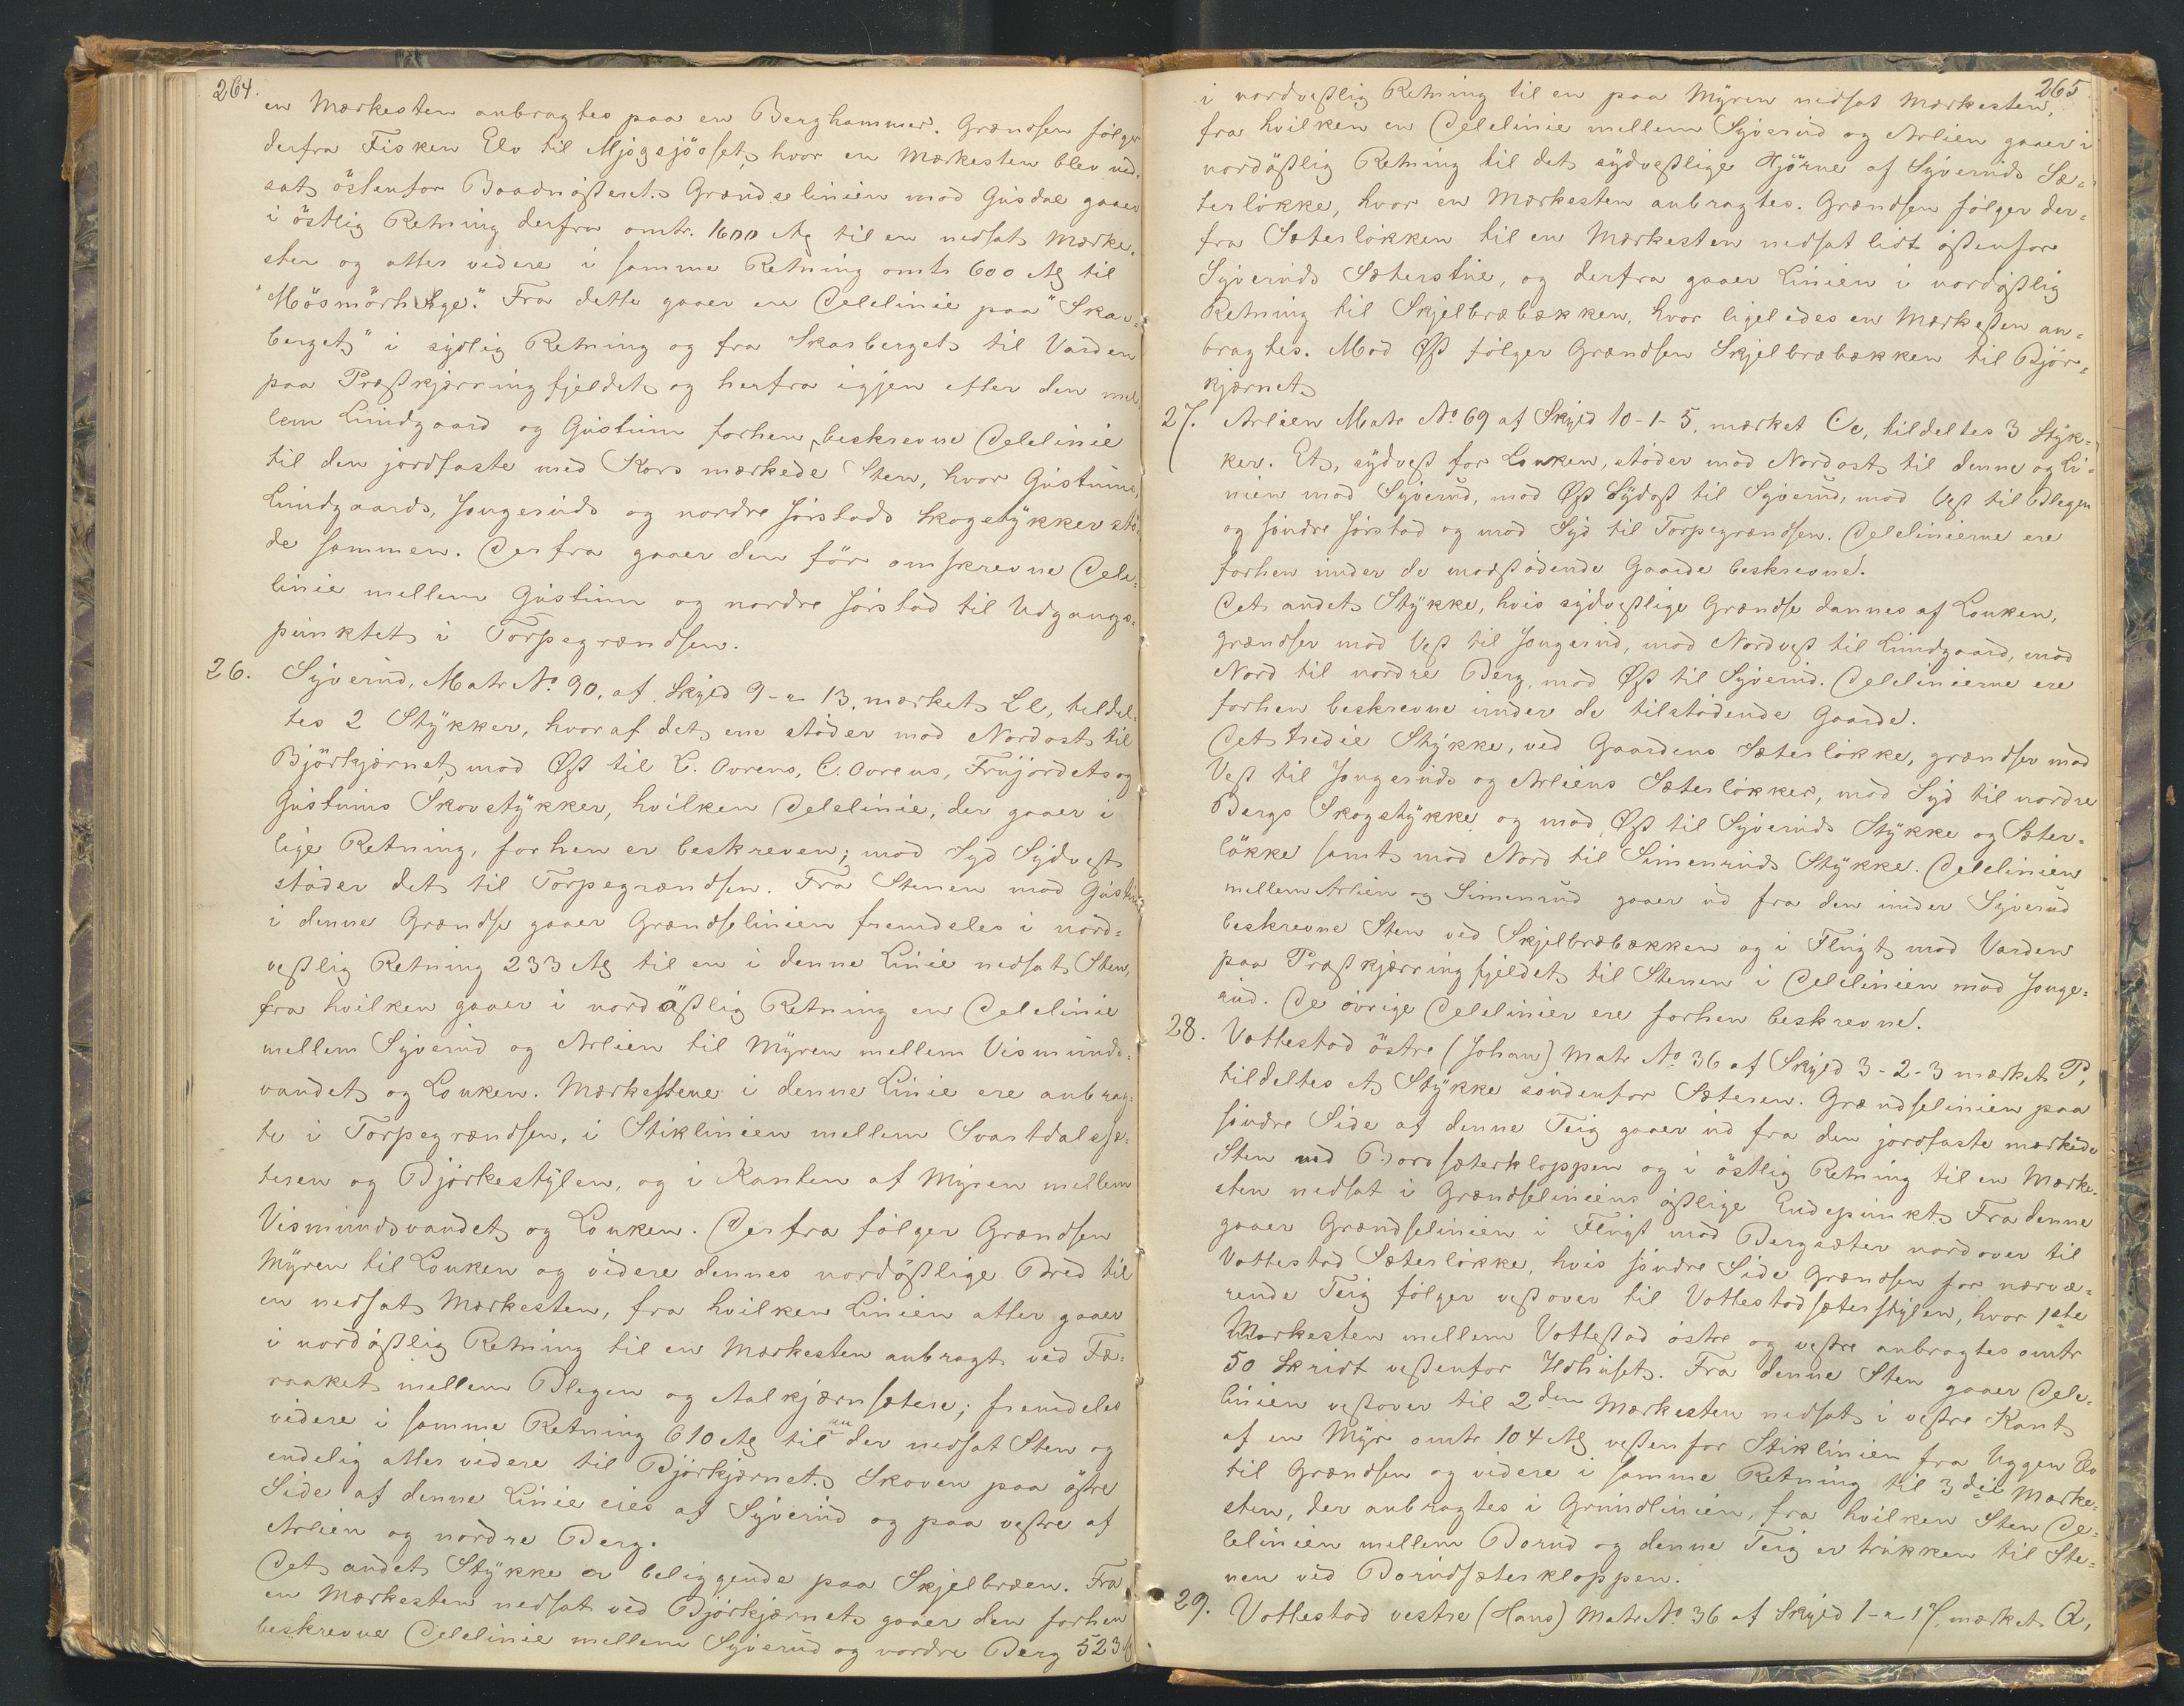 264.
en Mærkesten anbragtes paa en Berghammer. Grændsen følger
derfra Fisken Elv til Mjøgsjöoset, hvor en Mærkesten blev ned-
sat östenfor Baadnøsteret. Grændselinien mod Gusdal gaaer
i östlig Retning derfra omtr. 1600 Al til en nedsat Mærke-
sten og atter videre i samme Retning omtr 600 Al til
"Mösmörhauge". Fra dette gaaer en Delelinie paa "Skar-
berget" i sydlig Retning og fra Skarberget til Varden
paa Præstkjærringfjeldet og herfra igjen efter den mel-
lem Lundgaard og Gustum forhen beskrevne Delelinie
til den jordfaste med Kors mærkede Sten, hvor Gustums,
Lundgaards, Jongeruds og nordre Jørstads Skogstykker stö-
de sammen. Derfra gaaer den för omskrevne Dele-
linie mellem Gustum og nordre Jørstad til Udgangs-
punktet i Torpegrændsen.
26. Syverud, Matr No 90, af Skyld 9-"-13, mærket Ll, tildel-
tes 2 Stykker, hvoraf det ene støder mod Nordost til
Björkjærnet, mod Øst til L. Ovrens, C. Ovrens, Frujordets og
Gustums Skovstykker, hvilken Delelinie, der gaaer i
lige Retning, forhen er beskreven; mod Syd Sydvest
støder det til Torpegrændsen. Fra Stenen mod Gustum
i denne Grændse gaaer Grændselinien fremdeles i nord-
vestlig Retning 233 Al til en i denne Linie nedsat Sten,
fra hvilken gaaer i nordöstlig Retning en Delelinie
mellem Syverud og Arlien til Myren mellem Vismunds-
vandet og Lonken. Mærkestene i denne Linie ere anbrag-
te i Torpegrændsen, i Stiklinien mellem Svartdalsæ-
teren og Bjørkestylen, og i Kanten af Myren mellem
Vismundsvandet og Lonken. Derfra følger Grændsen
Myren til Lonken og videre dennes nordöstlige Bred til
en nedsat Mærkesten, fra hvilken Linien atter gaaer
i nordöstlig Retning til en Mærkesten anbragt ved Fæ-
raaket mellem Blegen og Aalkjærnsætere; fremdeles
videre i samme Retning 610 Al til en der nedsat Sten og
endelig atter videre til Bjørkjærnet. Skoven paa östre
Side af denne Linie eies af Syverud og paa vestre af
Arlien og nordre Berg.
Det andet Stykke er beliggende paa Skjelbræen. Fra
en Mærkesten nedsat ved Bjørkjærnet gaaer den forhen
beskrevne Delelinie mellem Syverud og nordre Berg 523 Al
265
i nordvestlig Retning til en paa Myren nedsat Mærkesten,
fra hvilken en Delelinie mellem Syverud og Arlien gaaer i
nordöstlig Retning til det sydvestlige Hjörne af Syveruds Sæ-
terløkke, hvor en Mærkesten anbragtes. Grændsen følger der-
fra Sæterløkken til en Mærkesten nedsat lidt østenfor
Syveruds Sæterstue, og derfra gaaer Linien i nordöstlig
Retning til Skjelbræbækken, hvor ligeledes en Mærkesten an-
bragtes. Mod Øst følger Grændsen Skjelbræbækken til Bjør-
kjærnet
27. Arlien Matr No 69 af Skyld 10-1-5, mærket Cc, tildeltes 3 Styk-
ker. Et, sydvest for Lonken, støder mod Nordost til denne og Li-
nien mod Syverud, mod Øst Sydost til Syverud, mod Vest til Blegen
og søndre Jørstad og mod Syd til Torpegrændsen. Delelinierne ere
forhen under de modstødende Gaarde beskrevne.
Det andet Stykke, hvis sydvestlige Grændse dannes af Lonken,
grændser mod Vest til Jongerud, mod Nordvest til Lundgaard, mod
Nord til nordre Berg, mod Øst til Syverud. Delelinierne ere
forhen beskrevne under de tilstødende Gaarde.
Det tredie Stykke, ved Gaardens Sæterløkke, grændser mod
Vest til Jongeruds og Arliens Sæterløkker, mod Syd til nordre
Bergs Skogstykke og mod Øst til Syveruds Stykke og Sæter-
løkke samt mod Nord til Simenruds Stykke. Delelinien
mellem Arlien og Simenrud gaaer ud fra den under Syverud
beskrevne Sten ved Skjelbræbækken og i Flugt mod Varden
paa Præstkjærringfjeldet til Stenen i Delelinien mod Jonge-
rud. De övrige Delelinier ere forhen beskrevne.
28. Vottestad östre (Johan) Matr No 36 af Skyld 3-2-3 mærket P,
tildeltes et Stykke søndenfor Sæteren. Grændselinien paa
søndre Side af denne Teig gaaer ud fra den jordfaste mærkede
Sten ved Borudsæterkloppen og i östlig Retning til en Mærke-
sten nedsat i Grændseliniens östlige Endepunkt. Fra denne
gaaer Grændselinien i Flugt mod Bergsæter nordover til
Vottestad Sæterløkke, hvis søndre Side Grændsen for nærvæ-
rende Teig følger vestover til Vottestadsæterstylen, hvor 1ste
Mærkesten mellem Vottestad østre og vestre anbragtes omtr
50 Skridt vestenfor Udhuset. Fra denne Sten gaaer Dele-
linien vestover til 2den Mærkesten nedsat i vestre Kant
af en Myr omtr 104 Al vestenfor Stiklinien fra Uggen Elv
til Grændsen og videre i samme Retning til 3die Mærke-
sten, der anbragtes i Grundlinien, fra hvilken Sten De-
lelinien mellem Borud og denne Teig er trukken til Ste-
nen ved Borudsæterkloppen.
29. Vottestad vestre (Hans) Matr No 36 af Skyld 1-"-17, mærket Q,